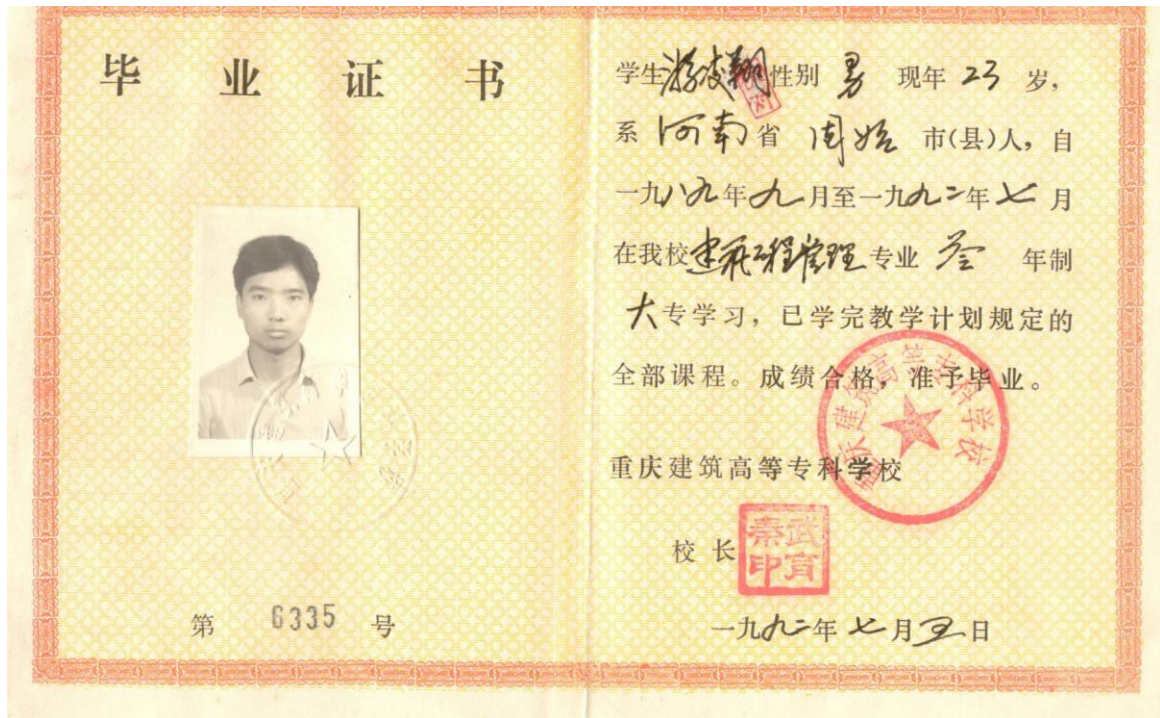 毕业证书
第 6335 号
学生游凌翔性别 男 现年 23 岁,
系 河南省 固始 市(县)人,自
一九八九年九月至一九九二年七月
在我校建筑工程管理专业 叁 年制
大专学习,已学完教学计划规定的
全部课程。成绩合格,准予毕业。
重庆建筑高等专科学校
重庆建筑高等专科学校
校长
一九九二年七月五日